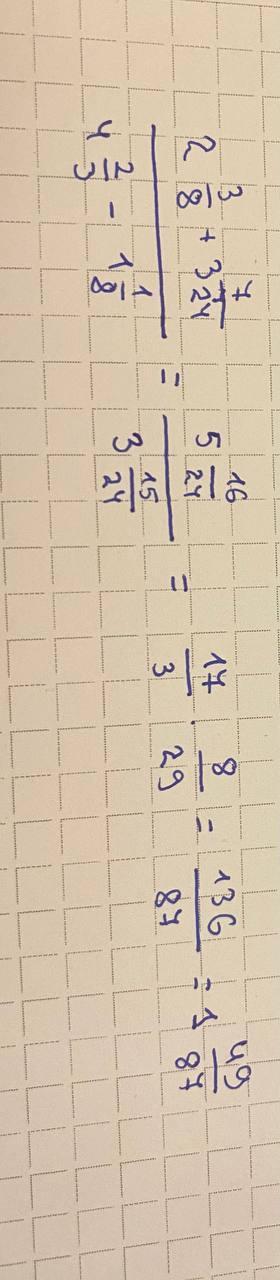 (2 3/8 + 3 7/24) / (4 2/3 - 1 1/8) = (5 16/24) / (3 15/24) = 17/3 · 8/29 = 136/87 = 1 49/87